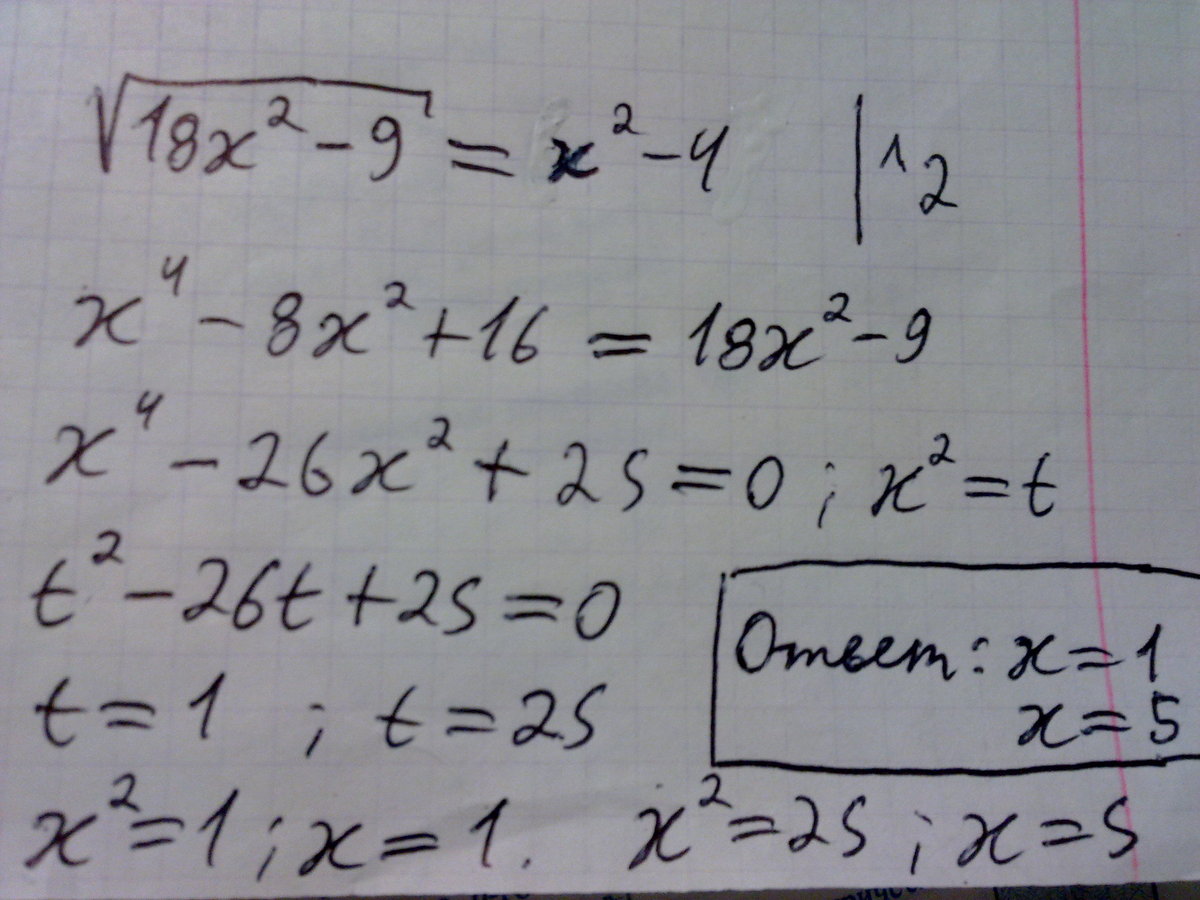 √(18x² - 9) = x² - 4 | ^2
x⁴ - 8x² + 16 = 18x² - 9
x⁴ - 26x² + 25 = 0 ; x² = t
t² - 26t + 25 = 0
Ответ: x = 1
x = 5
t = 1 ; t = 25
x² = 1 ; x = 1. x² = 25 ; x = 5